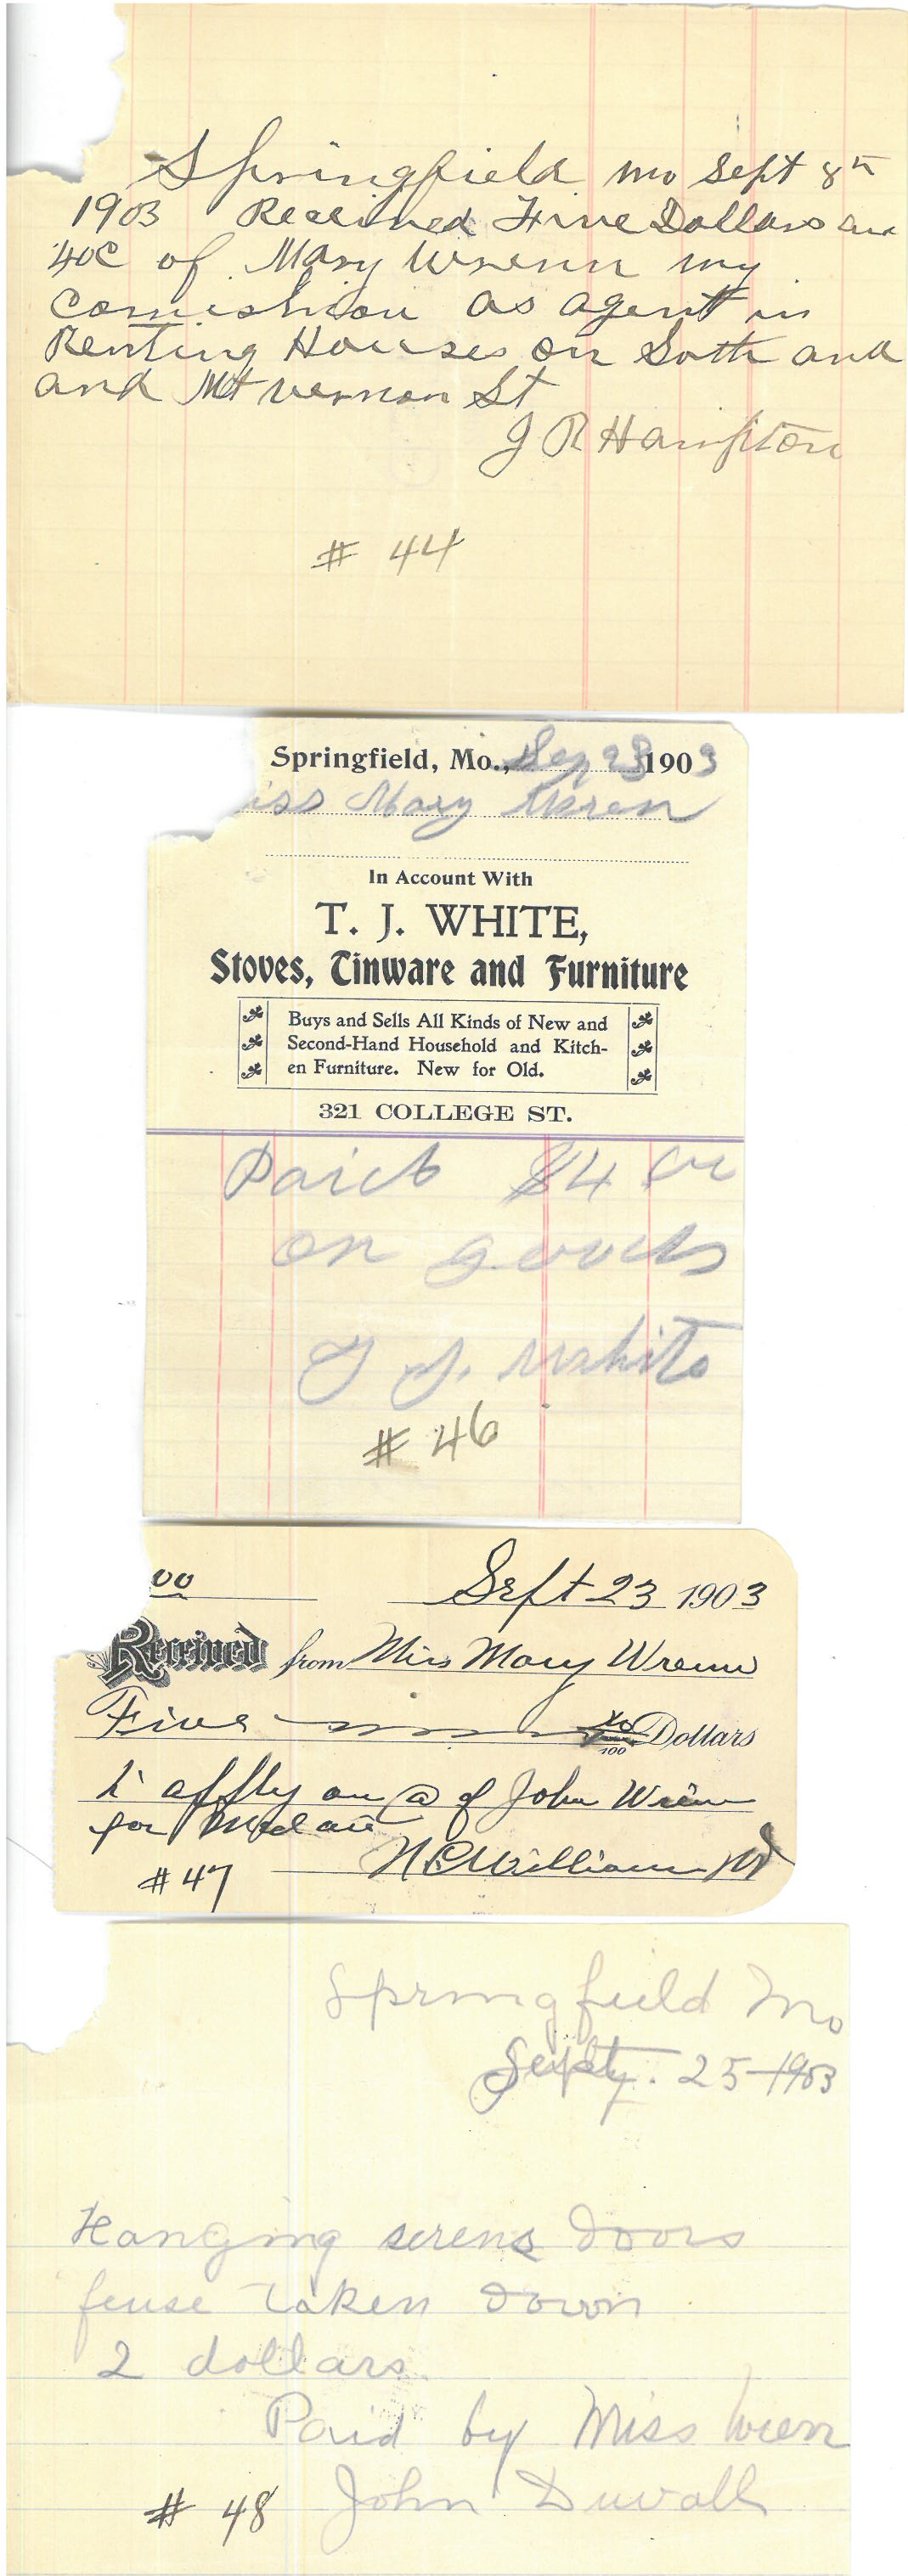 Springfield Mo Sept 8th
1903 Received Five Dollars and
40c of Mary Wrenn my
Comishion as agent in
Renting Houses on Soth and
and Mt vernon St
J R Hampton
# 44
Springfield, Mo., Sep 23 1903
iss Mary Wren
In Account With
T. J. WHITE,
Stoves, Tinware and Furniture
Buys and Sells All Kinds of New and
Second-Hand Household and Kitch-
en Furniture. New for Old.
321 COLLEGE ST.
Paid $4 00
on goods
T J. White
# 46
00 Sept 23 1903
Received from Miss Mary Wrenn
Five no/100 Dollars
to apply on @ of John Wrenn
for
# 47 Williams MD
Springfield Mo
Sept. 25-1903
Hanging screns Doors
fense Taken Down
2 dollars
Paid by Miss Wren
# 48 John Duvall